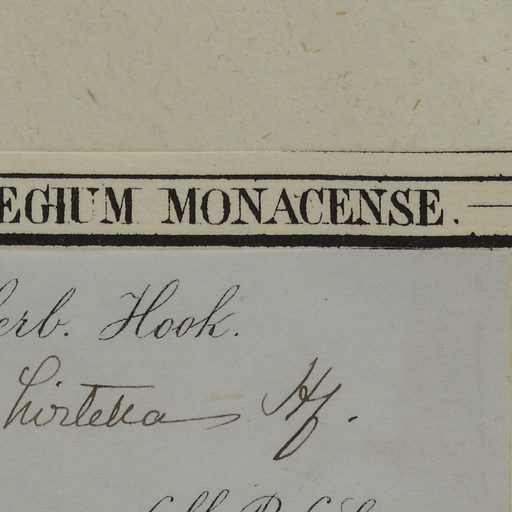 EGIUM MONACENSE.
erb. Hook.
hirtella Hf.